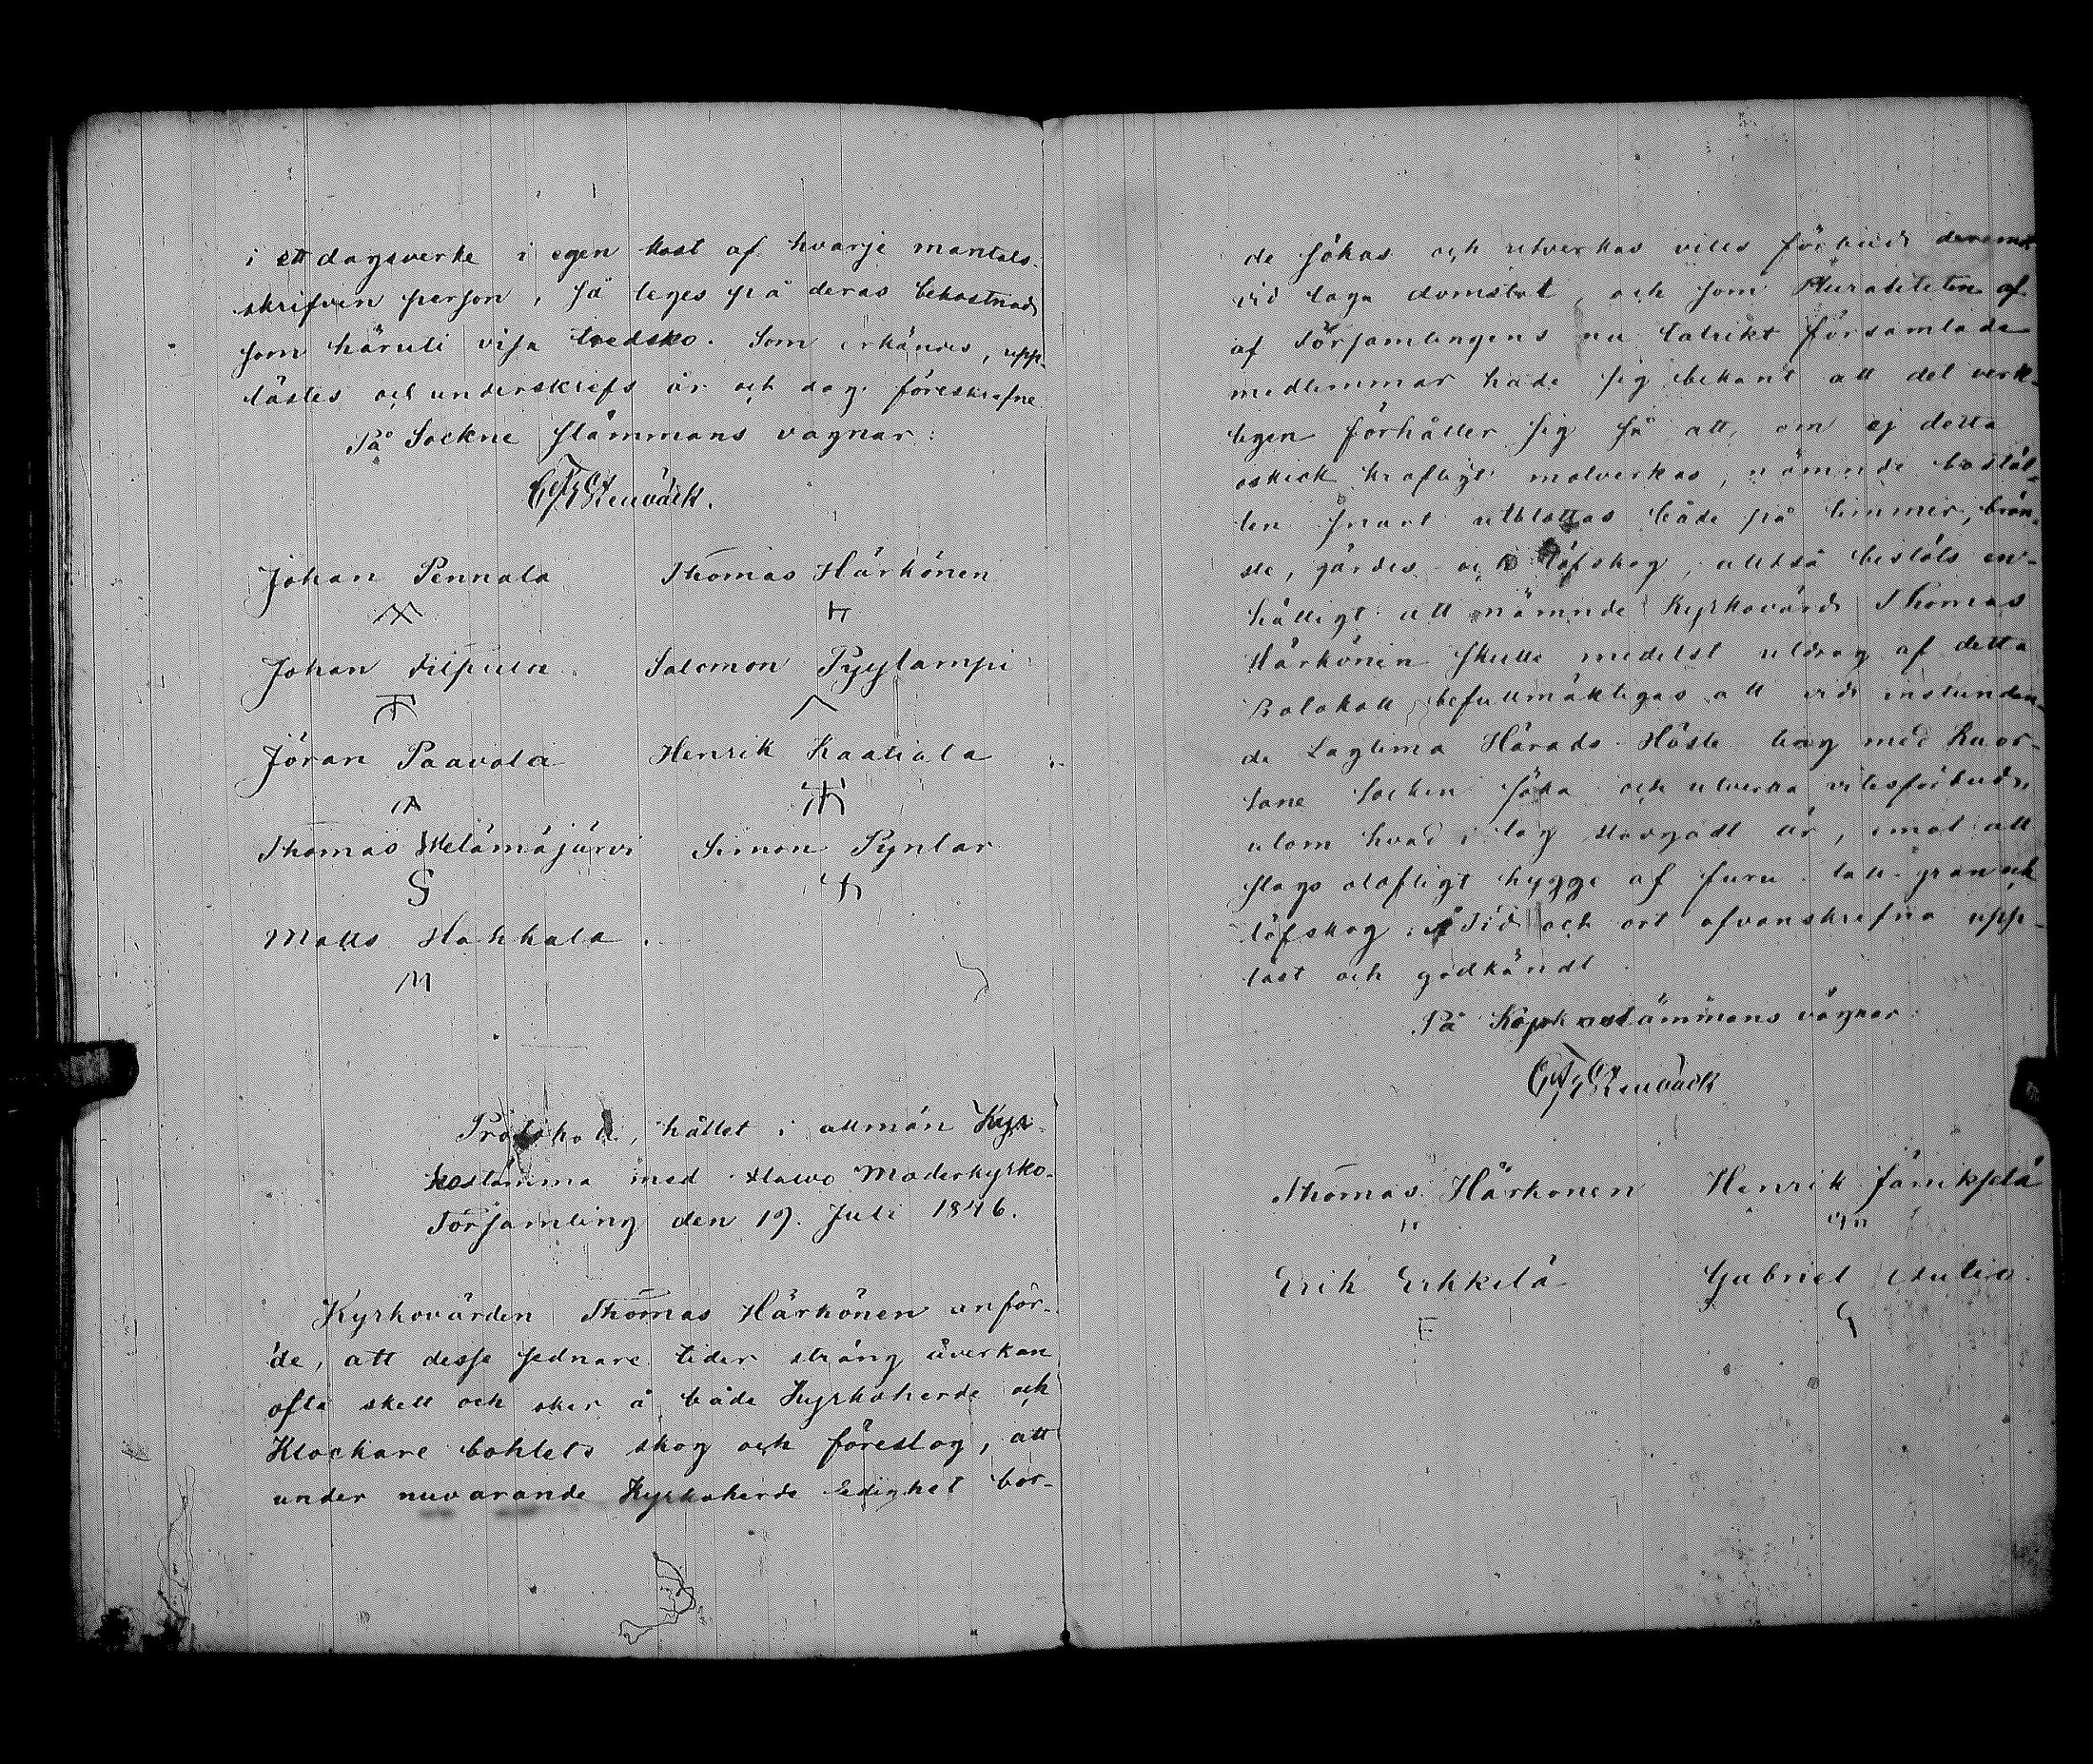 i ett dagsverke i egen kost af hvarje mantals-
skrifven person, så leges på deras bekostnad
som häruti visa tredsko. Som erkändes, upp-
lästes och underskrefs år och dag föreskrefne
På Sockne stämmans vägnar:
Stenbäck.
Johan Pennala Thomas Härkönen
Johan Filpula. Salomon Pyylampi
Jöran Paavola Henrik Kaatiala
Thomas Welämäjärvi Simon Pyntar
Matts Hahkala.
M
Protokoll, hållet i allmän Kyr-
kostämma med Alavo Moderkyrko-
Församling den 19. Juli 1846.
Kyrkovärden Thomas Härkönen anför-
de, att desse sednare tider sträng åverkan
ofta skett och sker å både Kyrkoherde och
Klockare bohlets skog och föreslog, att
under nuvarande Kyrkoherde ledighet bor-
de sökas och utverkas vites förbud deremot
vid laga domstol, och som Pluraliteten af
af Församlingens nu talrikt församlade
medlemmar hade sig bekant att det verk-
ligen förhåller sig så att, om ej detta
oskick kraftigt motverkas, nämnde boställ-
len snart utblottas både på timmer, brän-
sle, gärdes och löfskog, alltså beslöts en-
hälligt att nämnde Kyrkovärd Thomas
Härkönen skulle medelst utdrag af detta
Protokoll befullmäktigas att vid instundan-
de Lagtima Härads Höste ting med Kuor-
tane Socken söka och utverka vitesförbud,
utom hvad i lag stadgadt är, emot all
slags olofligt hygge af furu- tall- gran och
löfskog. Tid och ort ofvanskrefna upp-
läst och godkändt.
På Kyrkostämmans vägnar:
Stenbäck
Thomas Härkönen Henrik Jänikselä
Erik Erkkilä Gabriel Autio.
E G